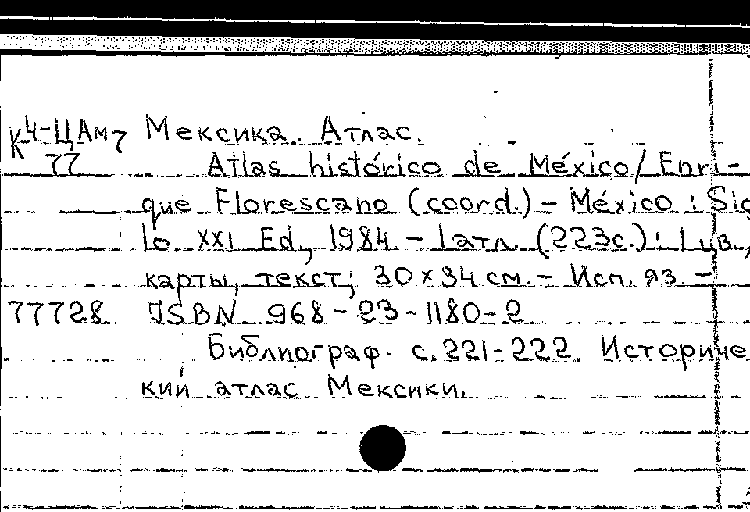 К4-ЦАм7 Мексика. Атлас.
77 Atlas histórico de México/Enri-
que Florescano (coord.) – México : Sig
lo XXI Ed, 1984. – 1 атл. (223с.): Цв.,
карты, текст; 30×34 см. – Исп. яз. –
77728 ISBN 968-23-1180-2
Библиограф. с.221-222. Историче
кий атлас Мексики.